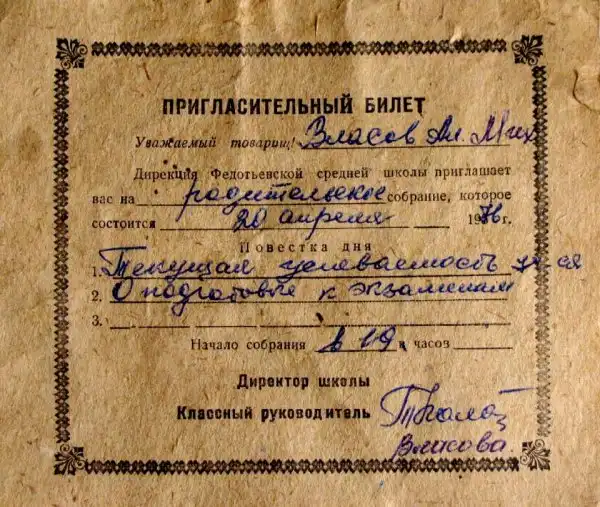 ПРИГЛАСИТЕЛЬНЫЙ БИЛЕТ
Уважаемый товарищ! Власов Ал. Мих
Дирекция Федотьевской средней школы приглашает
вас на родительское собрание, которое
состоится 20 апреля 1976 г.
Повестка дня
1. Текущая успеваемость уч-ся
2. О подготовке к экзаменам
3.
Начало собрания в 19 ч. часов
Директор школы
Классный руководитель
Власова